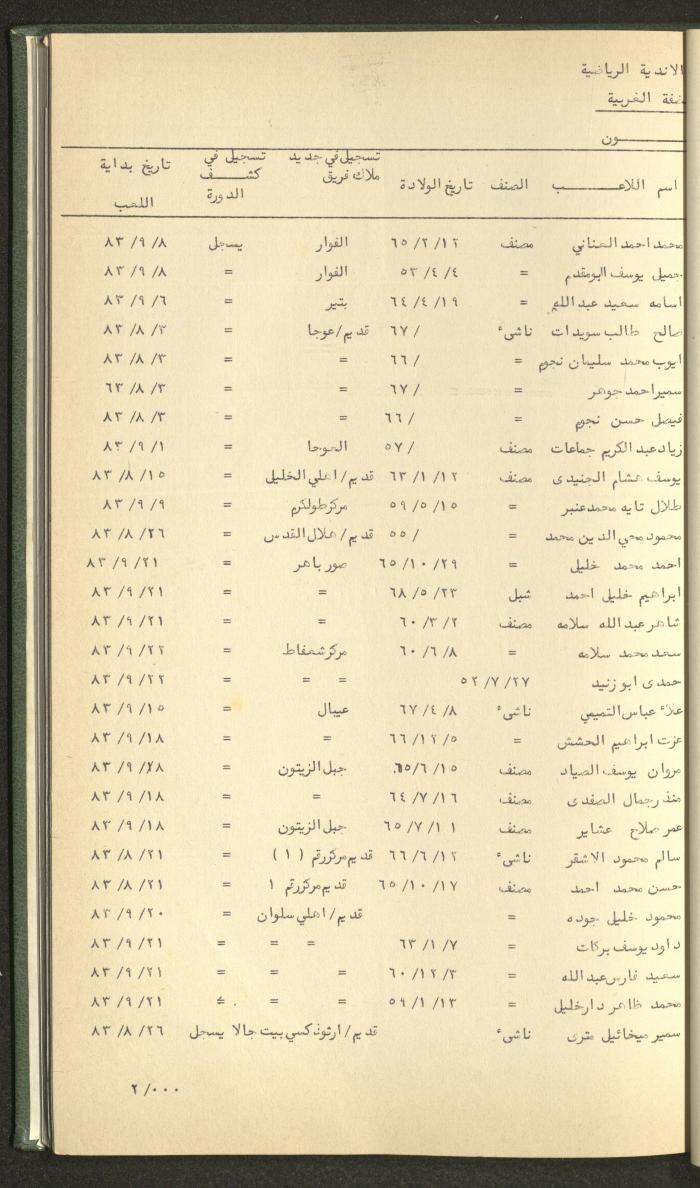 الاندية الرياضية
ضفة الغربية
ـون
اسم اللاعـب الصنف تاريخ الولادة تسجيل في جديد ملاك فريق تسجيل في كشـف الدورة تاريخ بداية اللعب
محمد احمد العناني مصنف ١٢/ ٢/ ٦٥ الفوار يسجل ٨/ ٩/ ٨٣
جميل يوسف ابو مقدم = ٤/ ٤/ ٥٣ الفوار = ٨/ ٩/ ٨٣
اسامه سعيد عبد الله = ١٩/ ٤/ ٦٤ بتير = ٦/ ٩/ ٨٣
صالح طالب سويدات ناشىء / ٦٧ قديم/عوجا = ٣/ ٨/ ٨٣
ايوب محمد سليمان نجوم = / ٦٦ = = ٣/ ٨/ ٨٣
سمير احمد جوهر = / ٦٧ = = ٣/ ٨/ ٦٣
فيصل حسن نجوم = / ٦٦ = = ٣/ ٨/ ٨٣
زياد عبد الكريم جماعات مصنف / ٥٧ العوجا = ١/ ٩/ ٨٣
يوسف هشام الجنيدى مصنف ١٢/ ١/ ٦٣ قديم/اهلي الخليل = ١٥/ ٨/ ٨٣
طلال تايه محمد عنبر = ١٥/ ٥/ ٥٩ مركز طولكرم = ٩/ ٩/ ٨٣
محمود محي الدين محمد = / ٥٥ قديم/هلال القدس = ٢٦/ ٨/ ٨٣
احمد محمد خليل = ٢٩/ ١٠/ ٦٥ صور باهر = ٢١/ ٩/ ٨٣
ابراهيم خليل احمد شبل ٢٣/ ٥/ ٦٨ = = ٢١/ ٩/ ٨٣
شاهر عبد الله سلامه مصنف ٢/ ٣/ ٦٠ = = ٢١/ ٩/ ٨٣
سعد محمد سلامه = ٨/ ٦/ ٦٠ مركز شعفاط = ٢٢/ ٩/ ٨٣
حمدى ابو زنيد ٢٧/ ٧/ ٥٢ = = = ٢٢/ ٩/ ٨٣
علاء عباس التميمي ناشىء ٨/ ٤/ ٦٧ عيبال = ١٥/ ٩/ ٨٣
عزت ابراهيم الحشش = ٥/ ١٢/ ٦٦ = = ١٨/ ٩/ ٨٣
مروان يوسف الصياد مصنف ١٥/ ٦/ ٦٥ جبل الزيتون = ١٨/ ٩/ ٨٣
منذر جمال الصفدى مصنف ١٦/ ٧/ ٦٤ = = ١٨/ ٩/ ٨٣
عمر صلاح عشاير مصنف ١١/ ٧/ ٦٥ جبل الزيتون = ١٨/ ٩/ ٨٣
سالم محمود الاشقر ناشىء ١٢/ ٦/ ٦٦ قديم مركز رقم (١) = ٢١/ ٨/ ٨٣
حسن محمد احمد مصنف ١٧/ ١٠/ ٦٥ قديم مركز رقم ١ = ٢١/ ٨/ ٨٣
محمود خليل جوده = قديم/اهلي سلوان = ٢٠/ ٩/ ٨٣
داود يوسف بركات = ٧/ ١/ ٦٣ = = = ٢١/ ٩/ ٨٣
سعيد فارس عبد الله = ٣/ ١٢/ ٦٠ = = = ٢١/ ٩/ ٨٣
محمد ظاهر دار خليل = ١٣/ ١/ ٥٩ = = = ٢١/ ٩/ ٨٣
سمير ميخائيل مترى ناشىء قديم/ارثوذكسي بيت جالا يسجل ٢٦/ ٨/ ٨٣
٢/٠٠٠